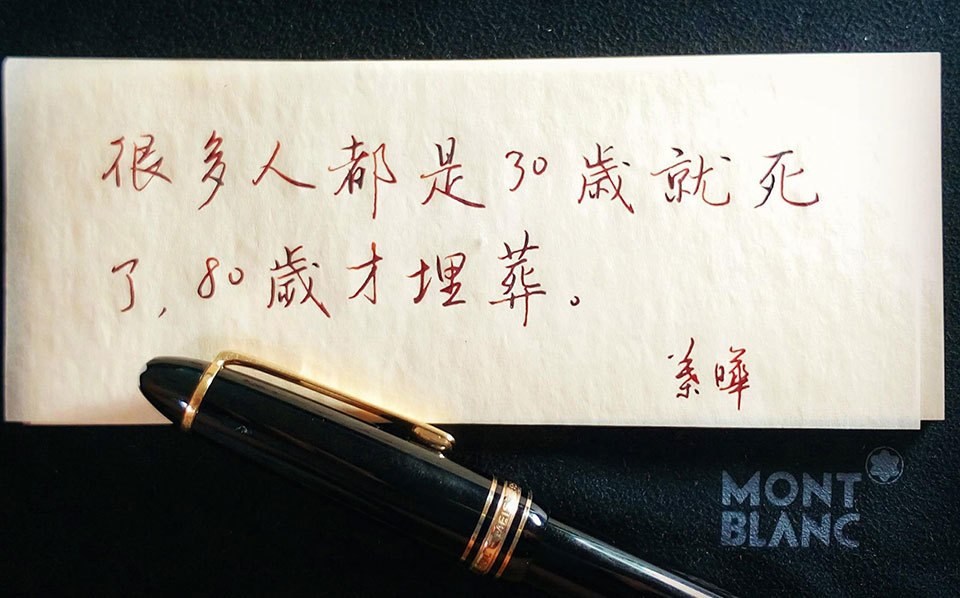 很多人都是30歲就死
了,80歲才埋葬。
MONT
BLANC